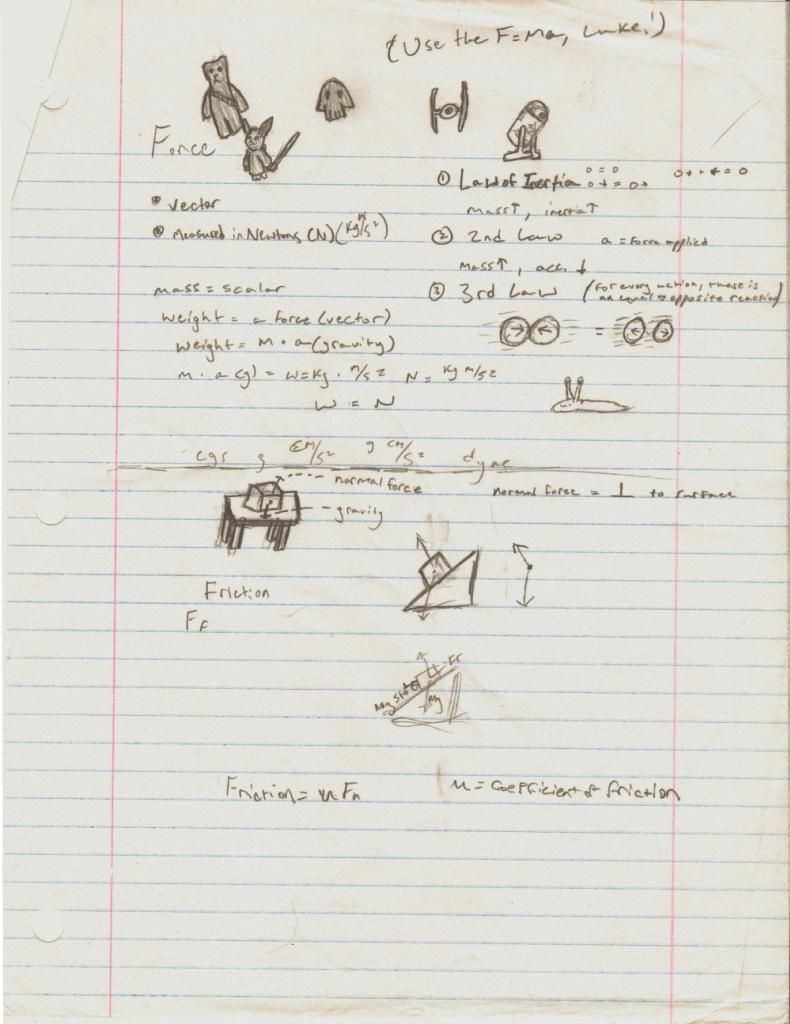 (Use the F=Ma, Luke!)
Force
• vector
• Measured in Newtons (N) (kg m/s²)
mass = scalar
weight = a force (vector)
weight = m • a (gravity)
m • a (g) = W = kg • m/s² N = kg m/s²
W = N
① Law of Inertia
mass↑, inertia↑
② 2nd Law a = Force applied
mass↑, acc. ↓
③ 3rd Law (For every action, there is
an equal + opposite reaction)
=
cgs g cm/s² g cm/s² dyne
normal force
gravity
normal force = ⊥ to surface
Friction
F_F
Fr
Mg
Friction = μ Fn
μ = coefficient of friction